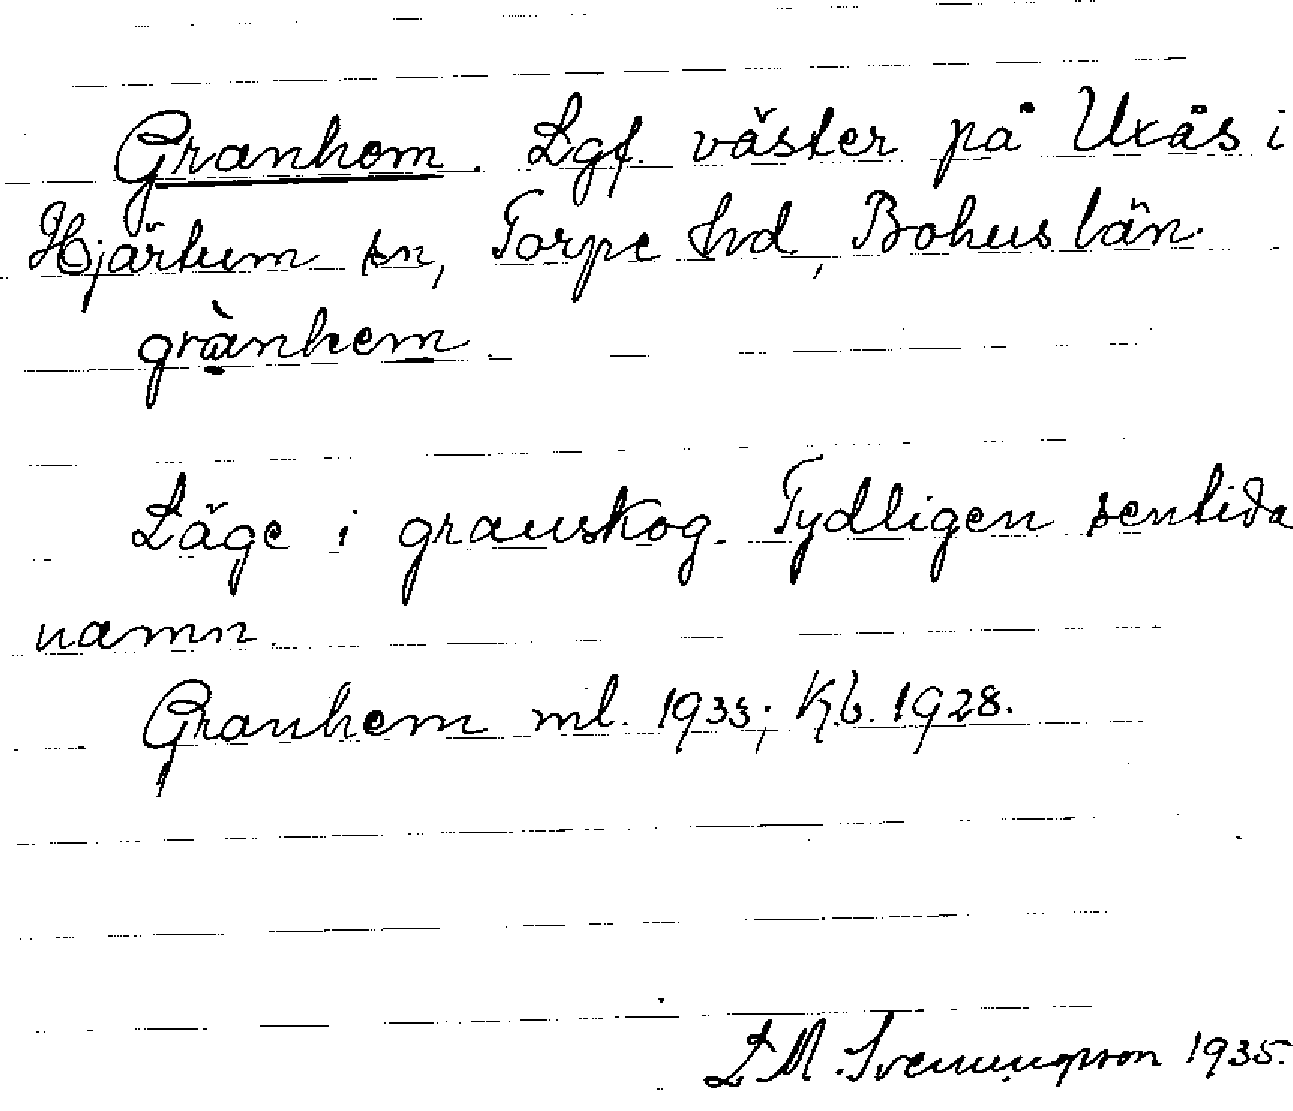 Granhem. Lgf. väster på Uxås i
Hjärtum sn, Torpe hd, Bohus län.
grànhem
Läge i granskog. Tydligen sentida
namn.
Granhem ml. 1933; Kb. 1928.
L M. Svenungsson 1935.